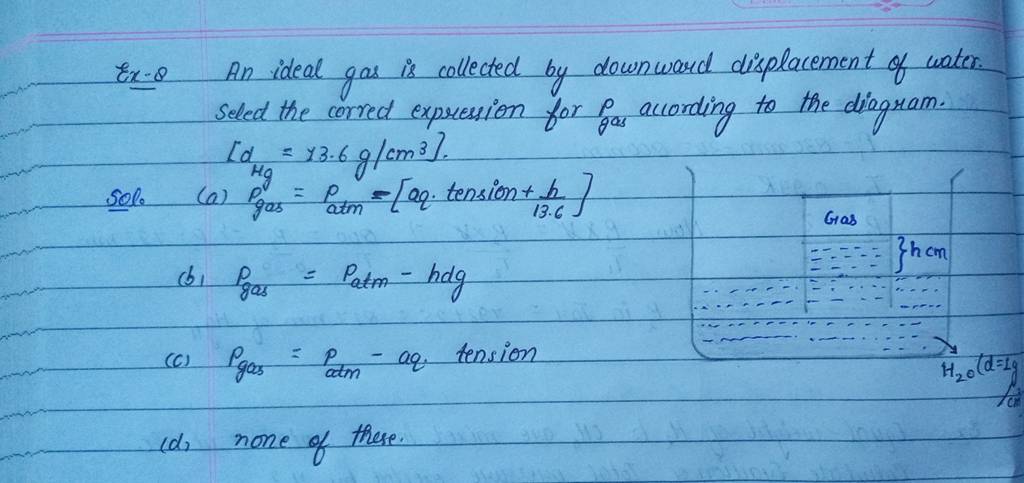 Ex-8 An ideal gas is collected by downward displacement of water.
Select the correct expression for P gas according to the diagram.
[d Hg = 13.6 g/cm³].
Sol. (a) P gas = P atm - [aq. tension + h/13.6]
Gas
(b) P gas = P atm - hdg
} h cm
(c) P gas = P atm - aq. tension
H₂O (d=1g/cm³
(d) none of these.